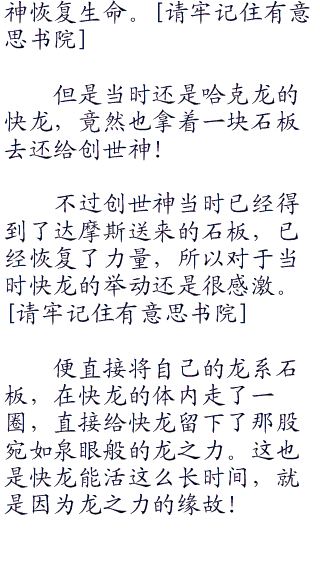 神恢复生命。[请牢记住有意
思书院]
但是当时还是哈克龙的
快龙，竟然也拿着一块石板
去还给创世神！
不过创世神当时已经得
到了达摩斯送来的石板，已
经恢复了力量，所以对于当
时快龙的举动还是很感激。
[请牢记住有意思书院]
便直接将自己的龙系石
板，在快龙的体内走了一
圈，直接给快龙留下了那股
宛如泉眼般的龙之力。这也
是快龙能活这么长时间，就
是因为龙之力的缘故！